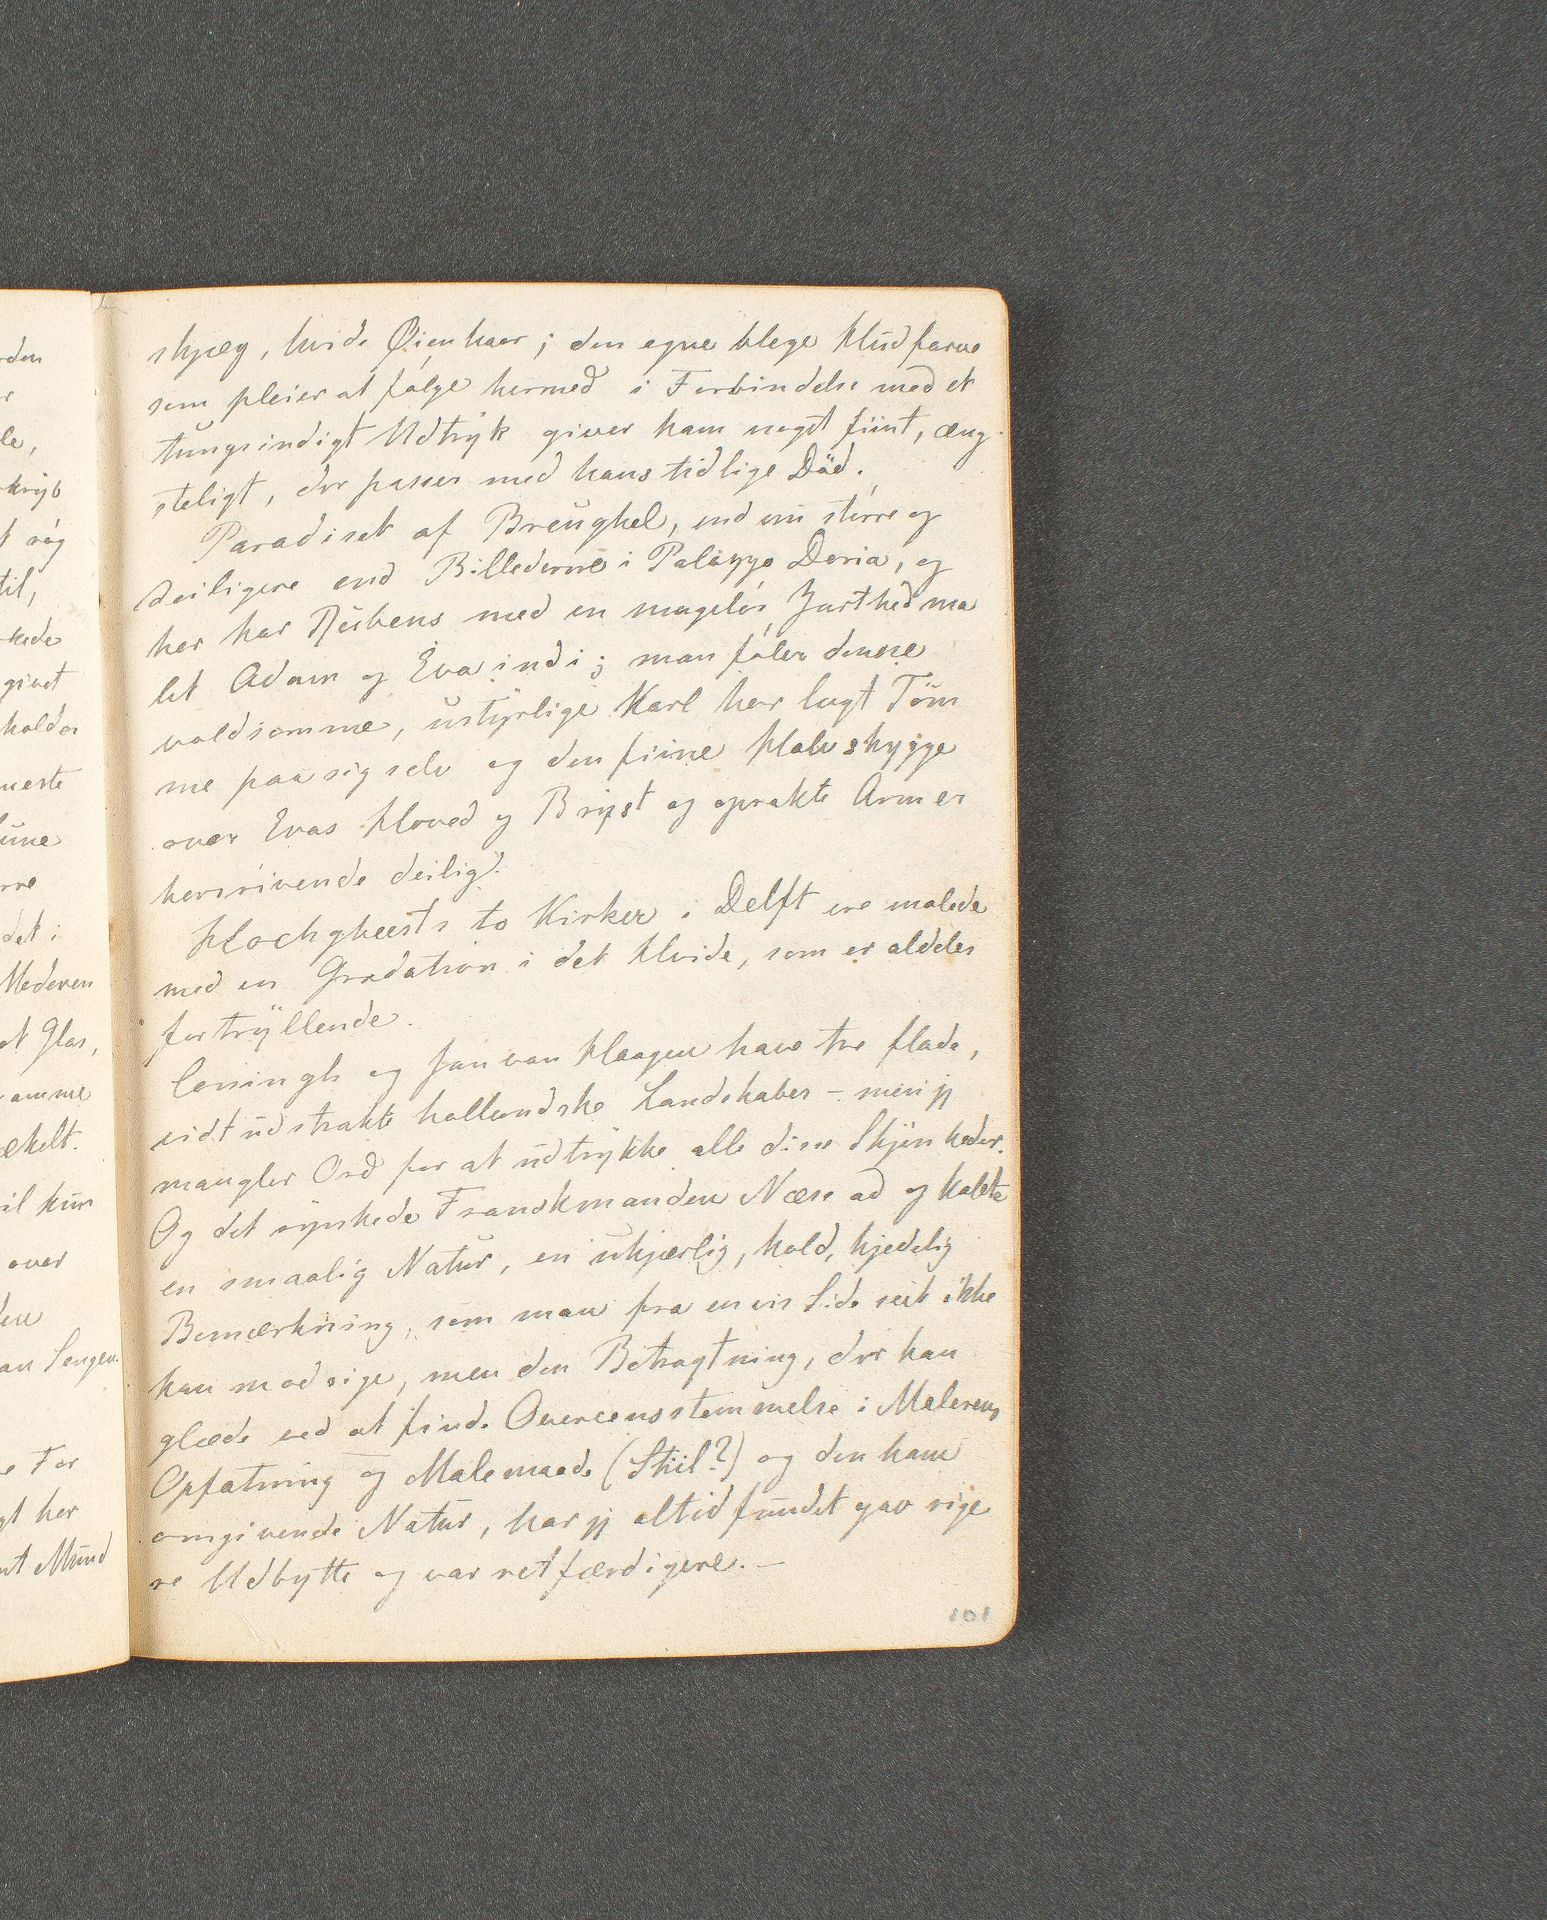 rden
r
le,
kryb
t sig
til,
kede
givet
holder
neste
lune
rre
det i
Mederen
et Glas,
amme
ækelt.
il kun
over
den
an Sengen.
e For
gt her
nt Mund
skjæg, hvide Øienhaar; den egne blege Hudfarve
som pleier at følge hermed i Forbindelse med et
tungsindigt Udtryk giver ham noget fiint, æng-
steligt, der passer med hans tidlige Död.
Paradiset af Breughel, end nu större og
deiligere end Billederne i Palazzo Doria, og
her har Rubens med en magelös Zarthed ma
let Adam og Eva ind i; man föler denne
voldsomme, ustyrlige Karl har lagt Töm
me paa sig selv og den fiine Halvskygge
over Evas Hoved og Bryst og oprakte Arm er
henrivende deilig.
Hochgheests to Kirker i Delft ere malede
med en Gradation i det Hvide, som er aldeles
fortryllende.
Coningh og Jan van Haagen have tre flade,
vidtudstrakte hollandske Landskaber – men jeg
mangler Ord for at udtrykke alle disse Skjönheder.
Og det rynkede Franskmanden Næse ad og kaldte
en smaalig Natur, en ukjærlig, kold, kjedelig
Bemærkning, som man fra en vis Side seet ikke
kan modsige, men den Betragtning, der kan
glæde ved at finde Overeensstemmelse i Malerens
Opfatning og Malemaade (Stiil?) og den ham
omgivende Natur, har jeg altid fundet gav rige
re Udbytte og var retfærdigere. –
101